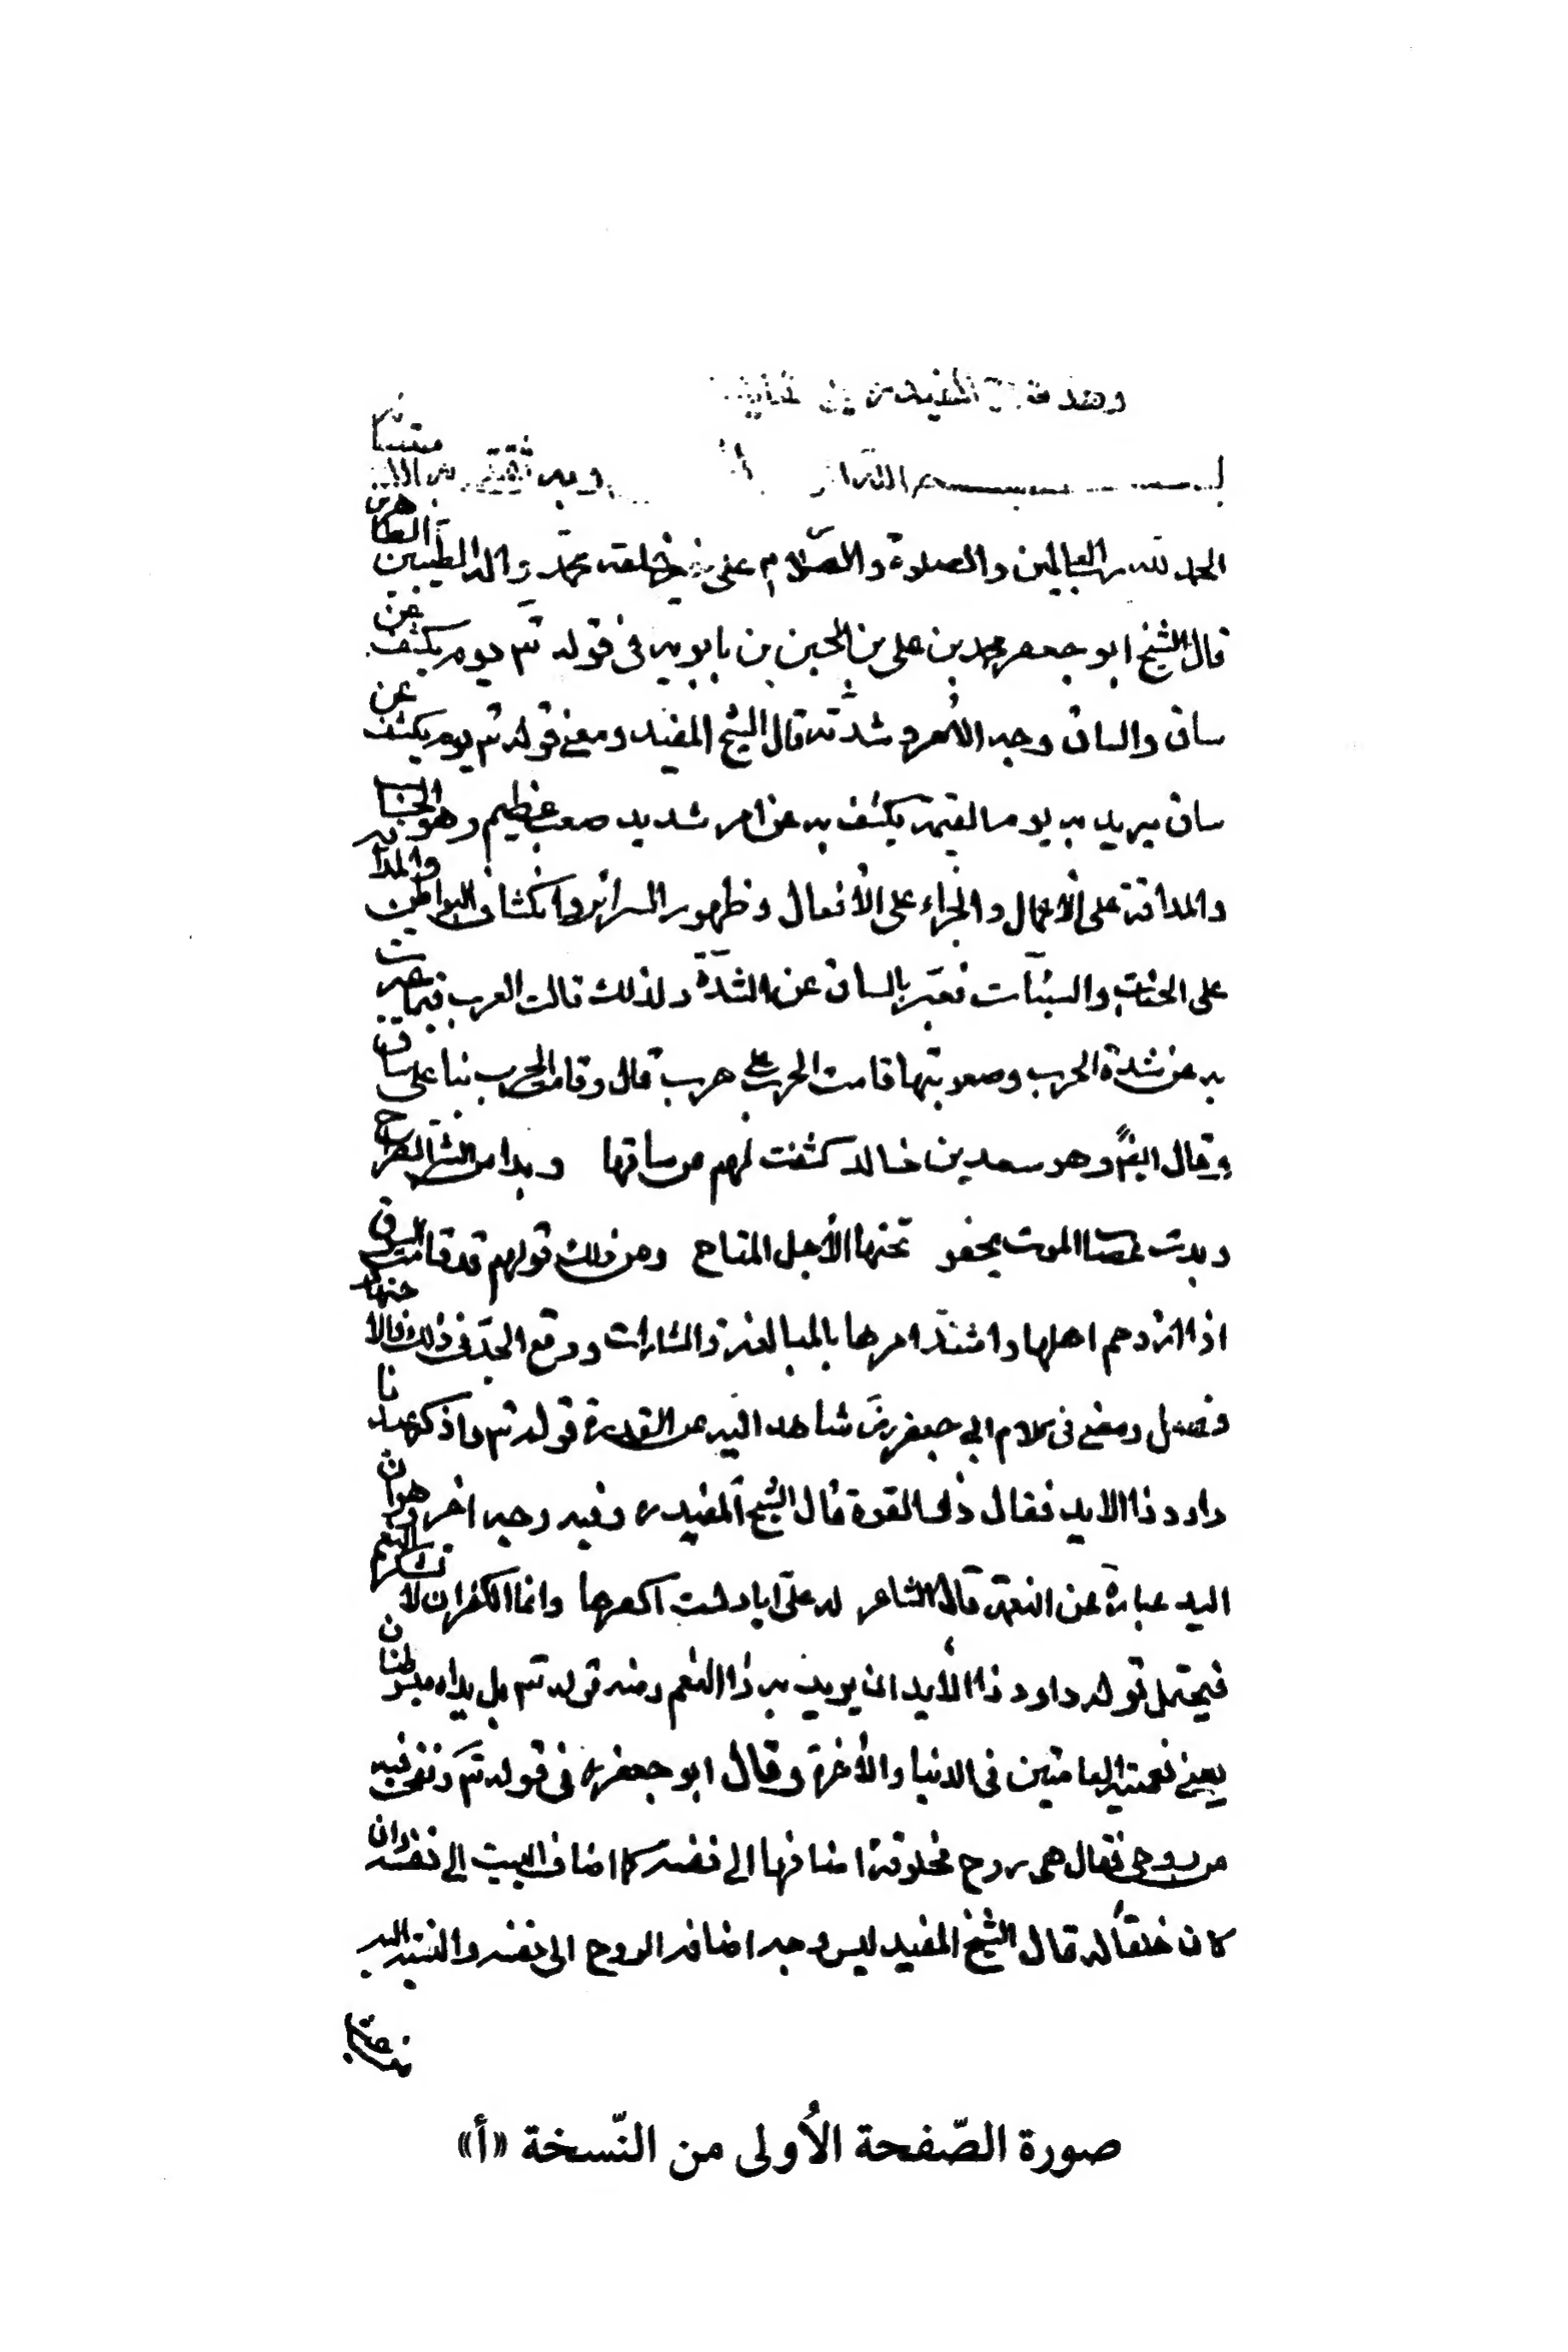 بسم الله وبه ثقتي
الحمد لله رب العالمين والصلوة والسلام على خير خلقه محمد واله الطيبين الطاهرين
قال الشيخ ابو جعفر محمد بن على بن الحسين بن بابويه فى قوله تم يوم يكشف عن
ساق والساق وجه الأمر وشدته قال الشيخ المفيد ومعنى قوله تم يوم يكشف عن
ساق يريد به يوم القيمة يكشف به عن امر شديد صعب عظيم وهو الحساب
والمداقة على الأعمال والجزاء على الأفعال وظهور السرائر وانكشاف البواطن والمداقة
على الحسنات والسيئات فعبّر بالساق عن الشدّة ولذلك قالت العرب فيما عبرت
به عن شدة الحرب وصعوبتها قامت الحرب على قال وقامت الحرب بنا على ساق
وقال ايضًا وهو سعد بن خالد كشفت لهم عن ساقها وبدا من الشر الصراح
وبدت الموت تحتها الأجل المتاح ومن ذلك قولهم قد قامت السوق
اذا ازدحم اهلها واشتدّ امرها بالمبالغة والمشارات ووقع الجدّ فى ذلك
فصل ومضى فى كلام ابى جعفر رض شاهد اليد عن القدرة قوله تم واذكر عبدنا
داود ذا الايد فقال ذا القوة قال الشيخ المفيد ره وفيه وجه اخر وهو ان
اليد عبارة عن النعمة قال الشاعر له علىّ اياد لست اكفرها وانما الكفران لا تشكر النعم
فيحتمل قوله داود ذا الأيد ان يريد به ذا النعم ومنه قوله تم بل يداه مبسوطتان
يعنى نعمتيه العامتين فى الدنيا والأخرة وقال ابو جعفر ره فى قوله تم ونفخت فيه
من روحى فقال هى روح مخلوقة اضافها الى نفسه كما اضاف البيت الى نفسه وان
كان خلقًا له قال الشيخ المفيد ليس وجه اضافة الروح الى نفسه والنسبة اليه
صورة الصّفحة الأُولى من النّسخة «أ»